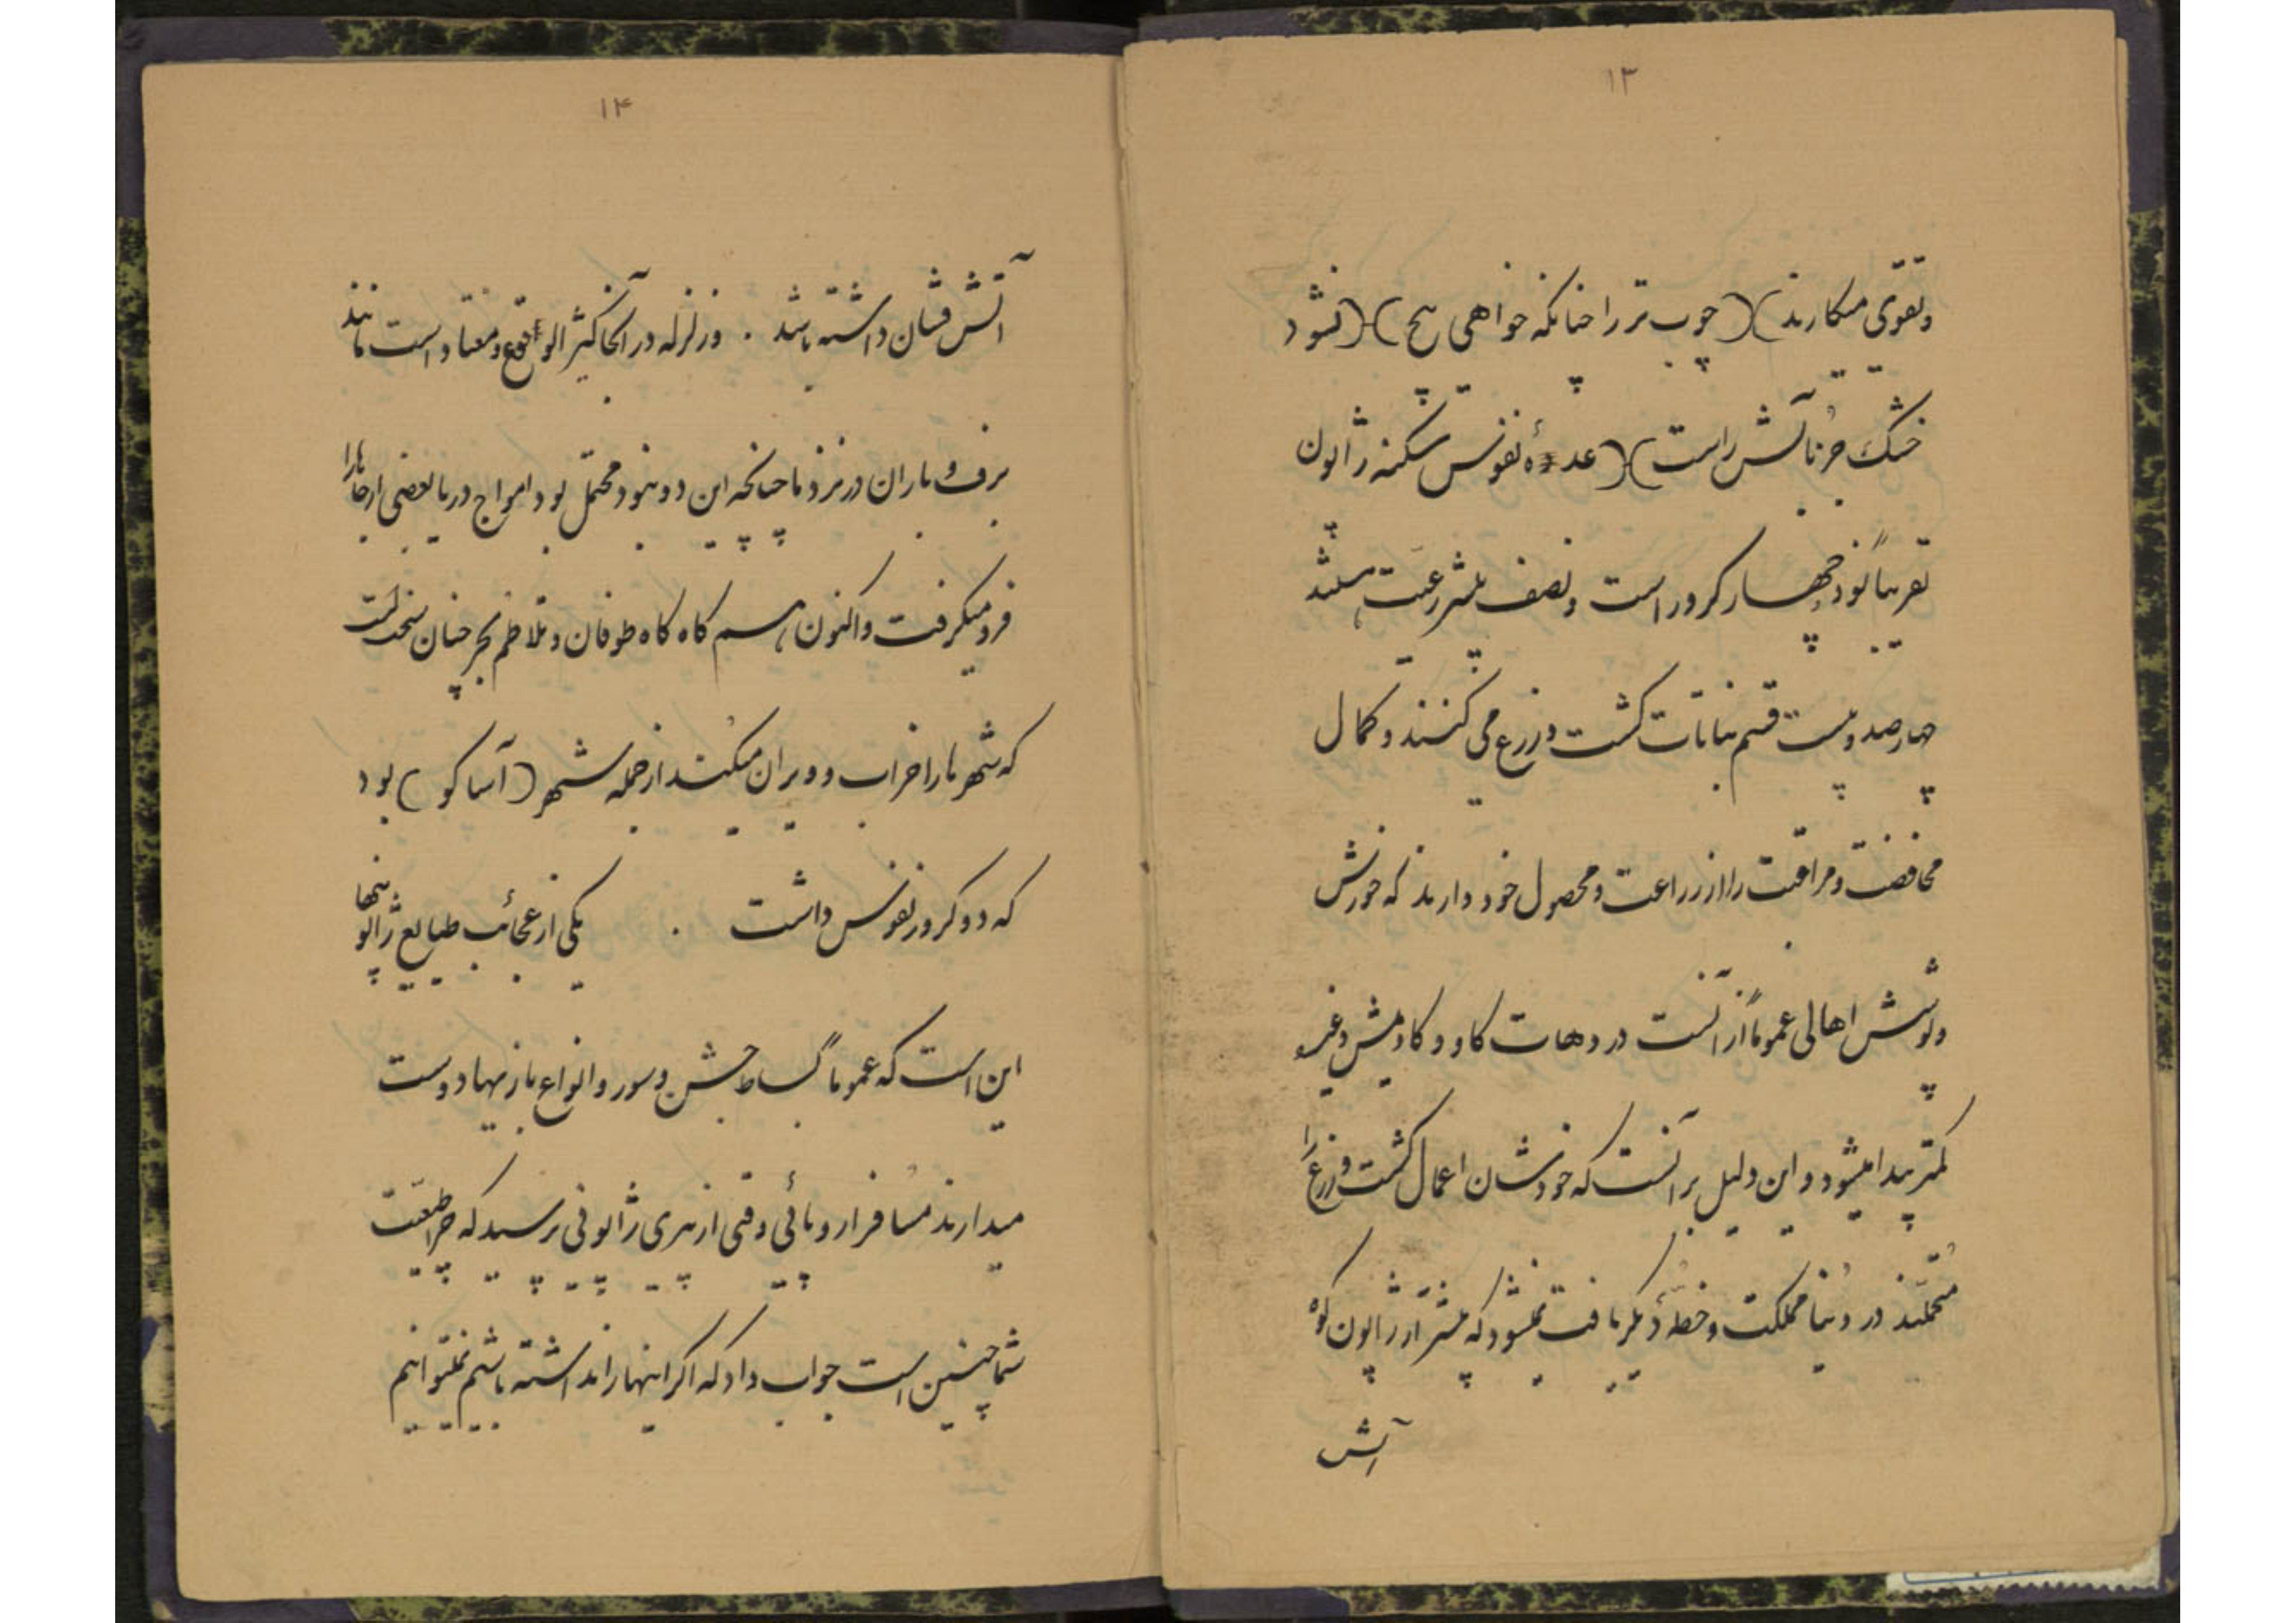 ۱۳
و تقوی میکارند)(چوب تر را چنانکه خواهی پیچ)(نشود
خشک جز بآتش راست)(عدهٔ نفوس سکنه ژاپون
تقریباً نود چهار کرور است و نصف بیشتر رعیت هستند
چهارصد و بیست قسم نباتات کشت و زرع می کنند و کمال
محافضت و مراقبت را از زراعت و محصول خود دارند که خورش
و پوشش اهالی عموماً از آنست در دهات کاو و کاومیش و غیره
کمتر پیدا میشود و این دلیل بر آنست که خودشان اعمال کشت و زرع را
متحملند در دنیا مملکت و خطهٔ دیگر یافت نمیشود که بیشتر از ژاپون کوه
آتش
۱۴
آتش فشان داشته باشد . و زلزله در آنجا کثیر الوقوع و معتاد است مانند
برف و باران در نزد ما چنانچه این دو نبود محتمل بود امواج دریا بعضی از جاها را
فرو میگرفت و اکنون هم گاه گاه طوفان و تلاطم بحر چنان سخت است
که شهر ها را خراب و ویران میکند از جمله شهر (آساکو) بود
که دو کرور نفوس داشت . یکی از عجائب طبایع ژاپونیها
این است که عموماً بساط جشن و سور و انواع بازیها دوست
میدارند مسافر اروپائی وقتی از پیری ژاپونی پرسید که چرا طبیعت
شما چنین است جواب داد که اگر اینها را نداشته باشیم نمیتوانیم